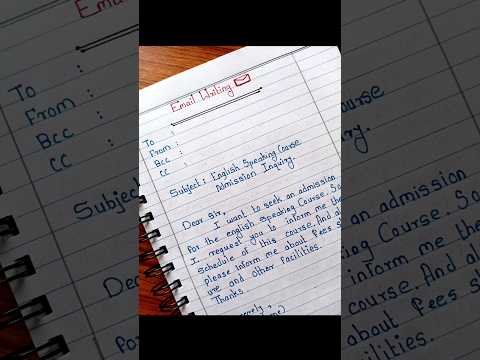 Email Writing
To :
From :
Bcc :
CC :
Subject : English Speaking Course
Admission Inquiry.
Dear Sir,
I want to seek an admission
for the english speaking Course. So
I request you to inform me the
schedule of this course. And al
please inform me about fees st
ure and other facilities.
Thanks